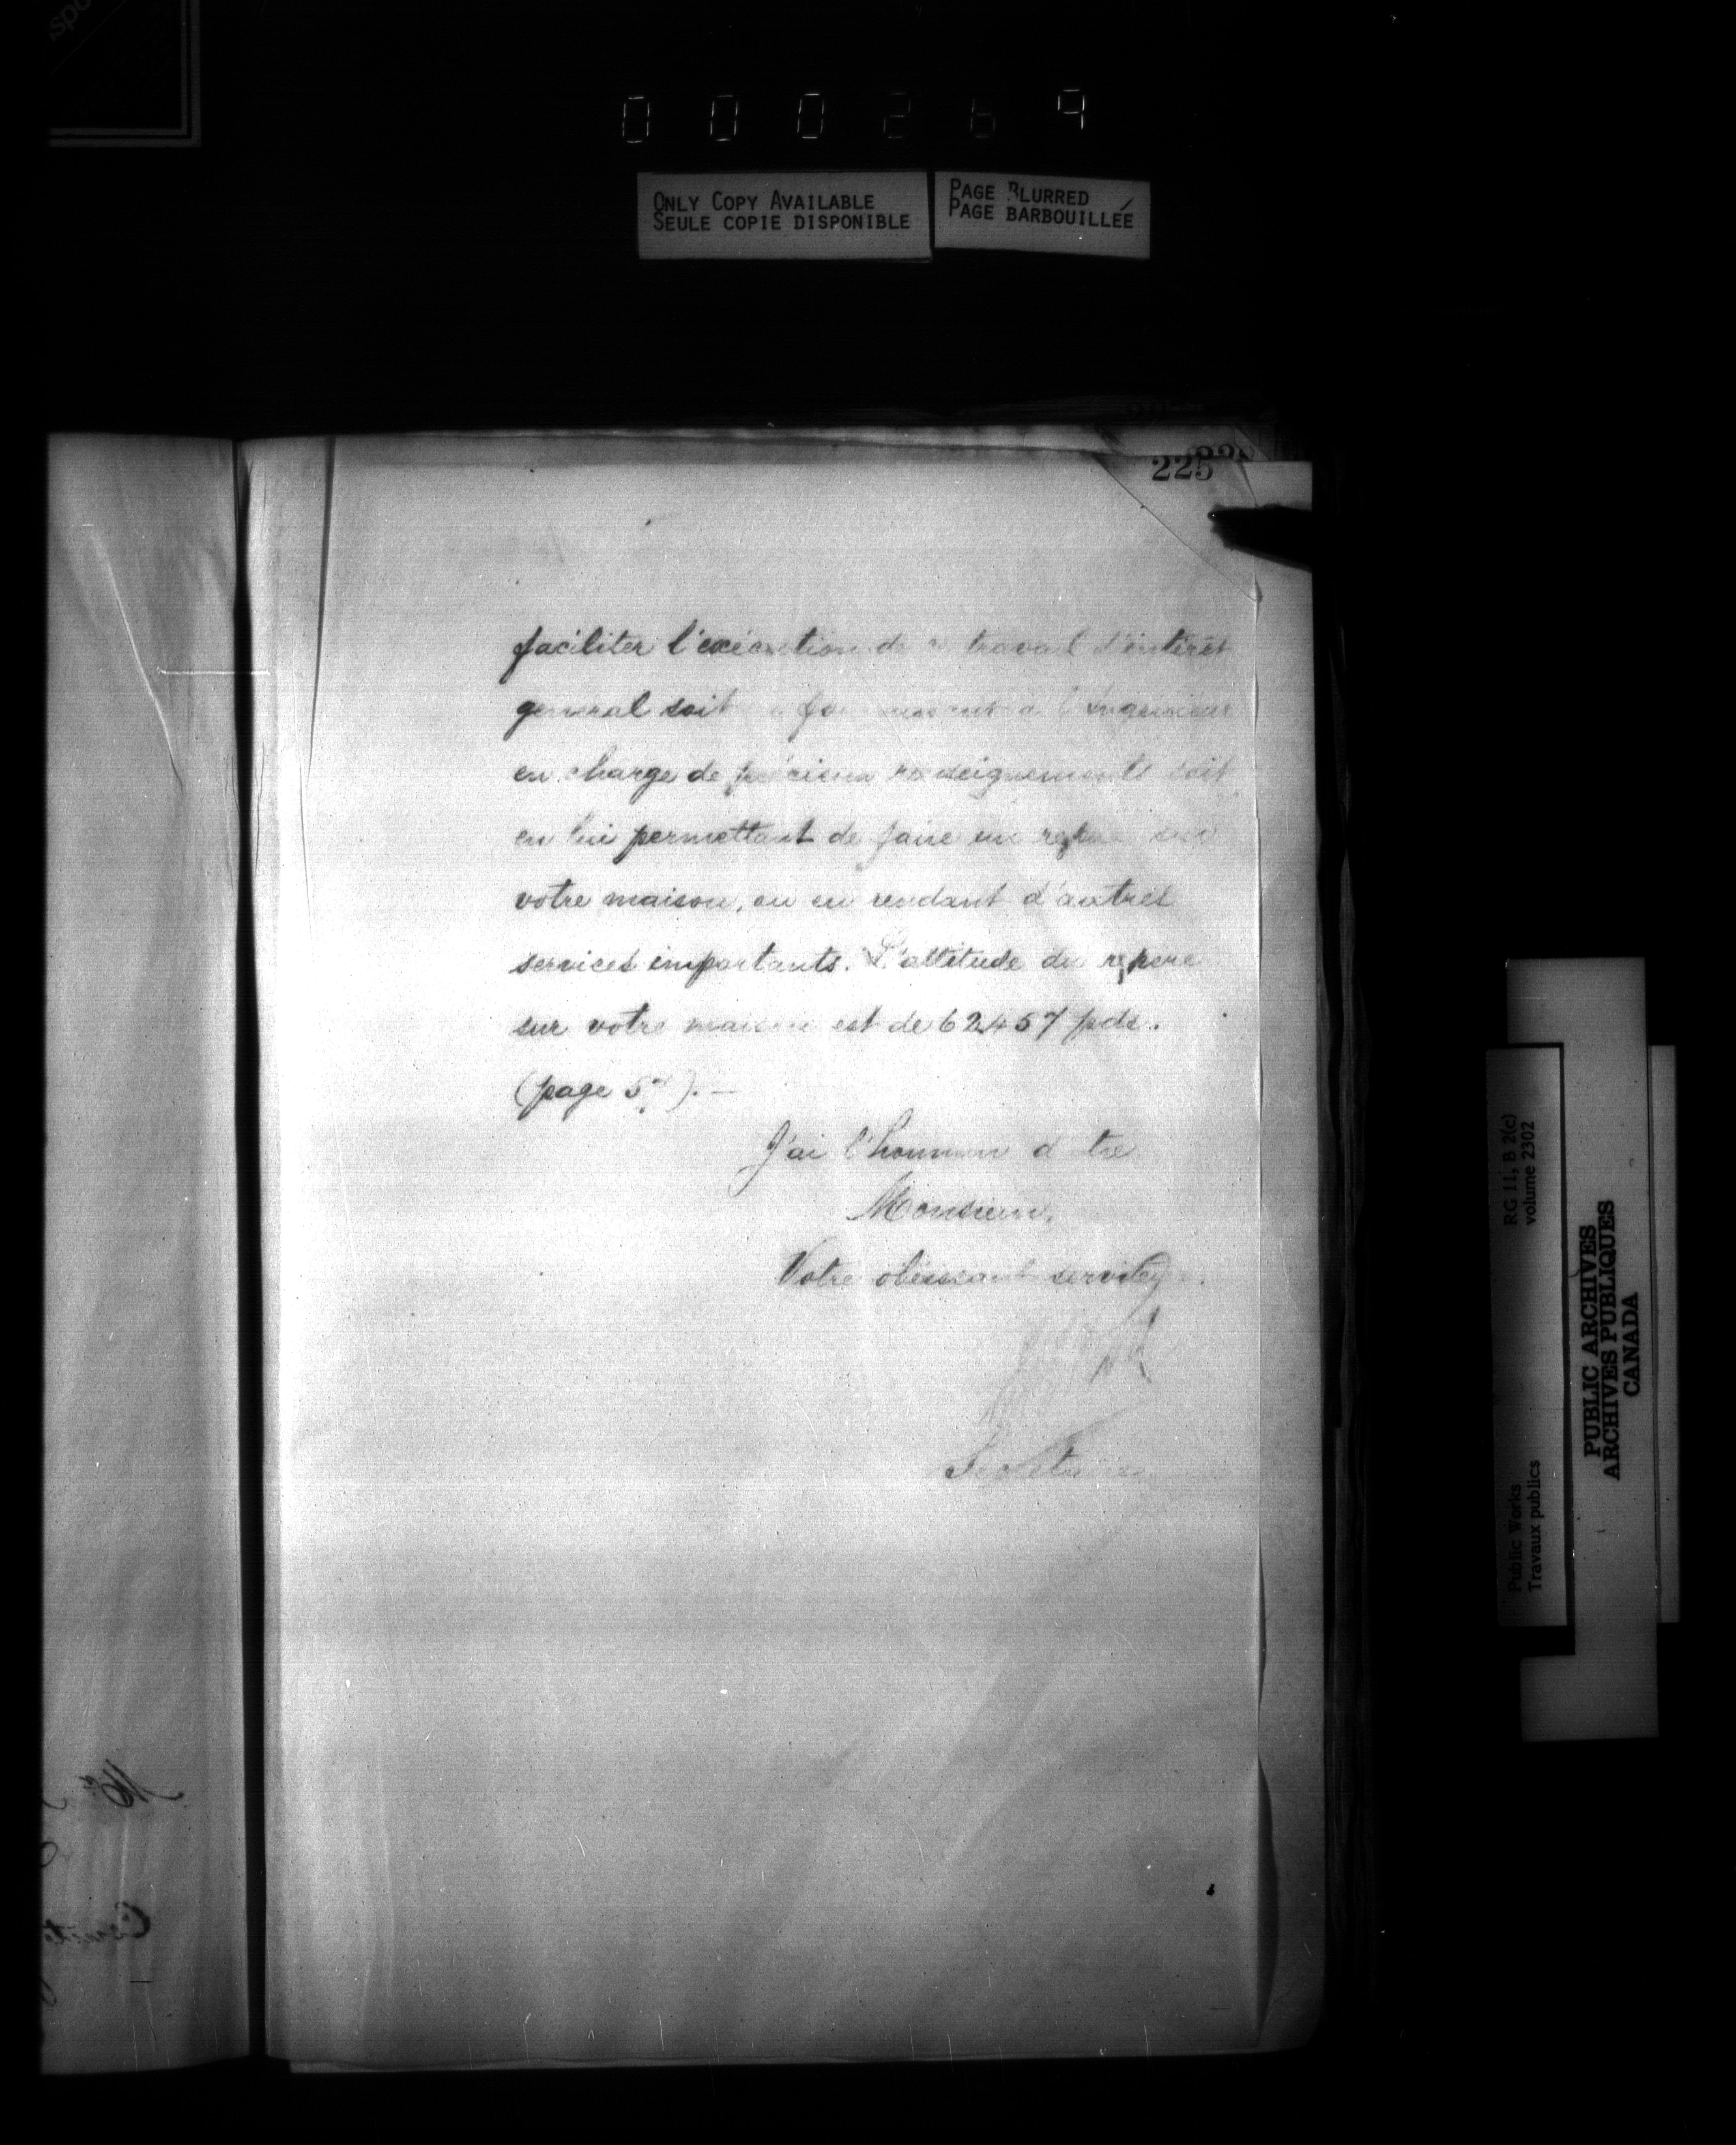 000269
ONLY COPY AVAILABLE
SEULE COPIE DISPONIBLE
PAGE BLURRED
PAGE BARBOUILLÉE
225
faciliter l'exécution de travail d'intérêt
general soit à l'Ingenieur
en charge de précieux renseignements soit
en lui permettant de faire un repère sur
votre maison, ou en rendant d'autres
services importants. L'altitude du repere
sur votre maison est de 62457 pds.
(page 5 ). —
J'ai l'honneur d'etre
Monsieur,
Votre obéissant serviteur.
Secretaire
RG 11, B 2(c)
volume 2302
Public Works
Travaux publics
PUBLIC ARCHIVES
ARCHIVES PUBLIQUES
CANADA